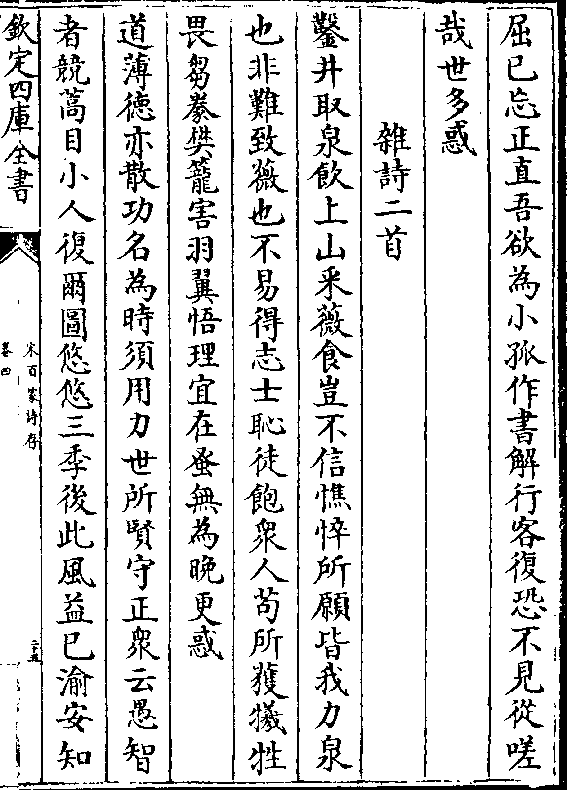 屈已忘正直吾欲為小孤作書解行客復恐不見從嗟
哉世多惑
雜詩二首
鑿井取泉飲上山采薇食豈不信憔悴所願皆我力泉
也非難致薇也不易得志士恥徒飽衆人茍所獲犧牲
畏芻豢樊籠害羽翼悟理宜在蚤無為晚更惑
道薄徳亦散功名為時須用力世所賢守正衆云愚智
者競蒿目小人復爾圖悠悠三季後此風益已渝安知
欽定四庫全書
宋百家詩存
卷四
二十五